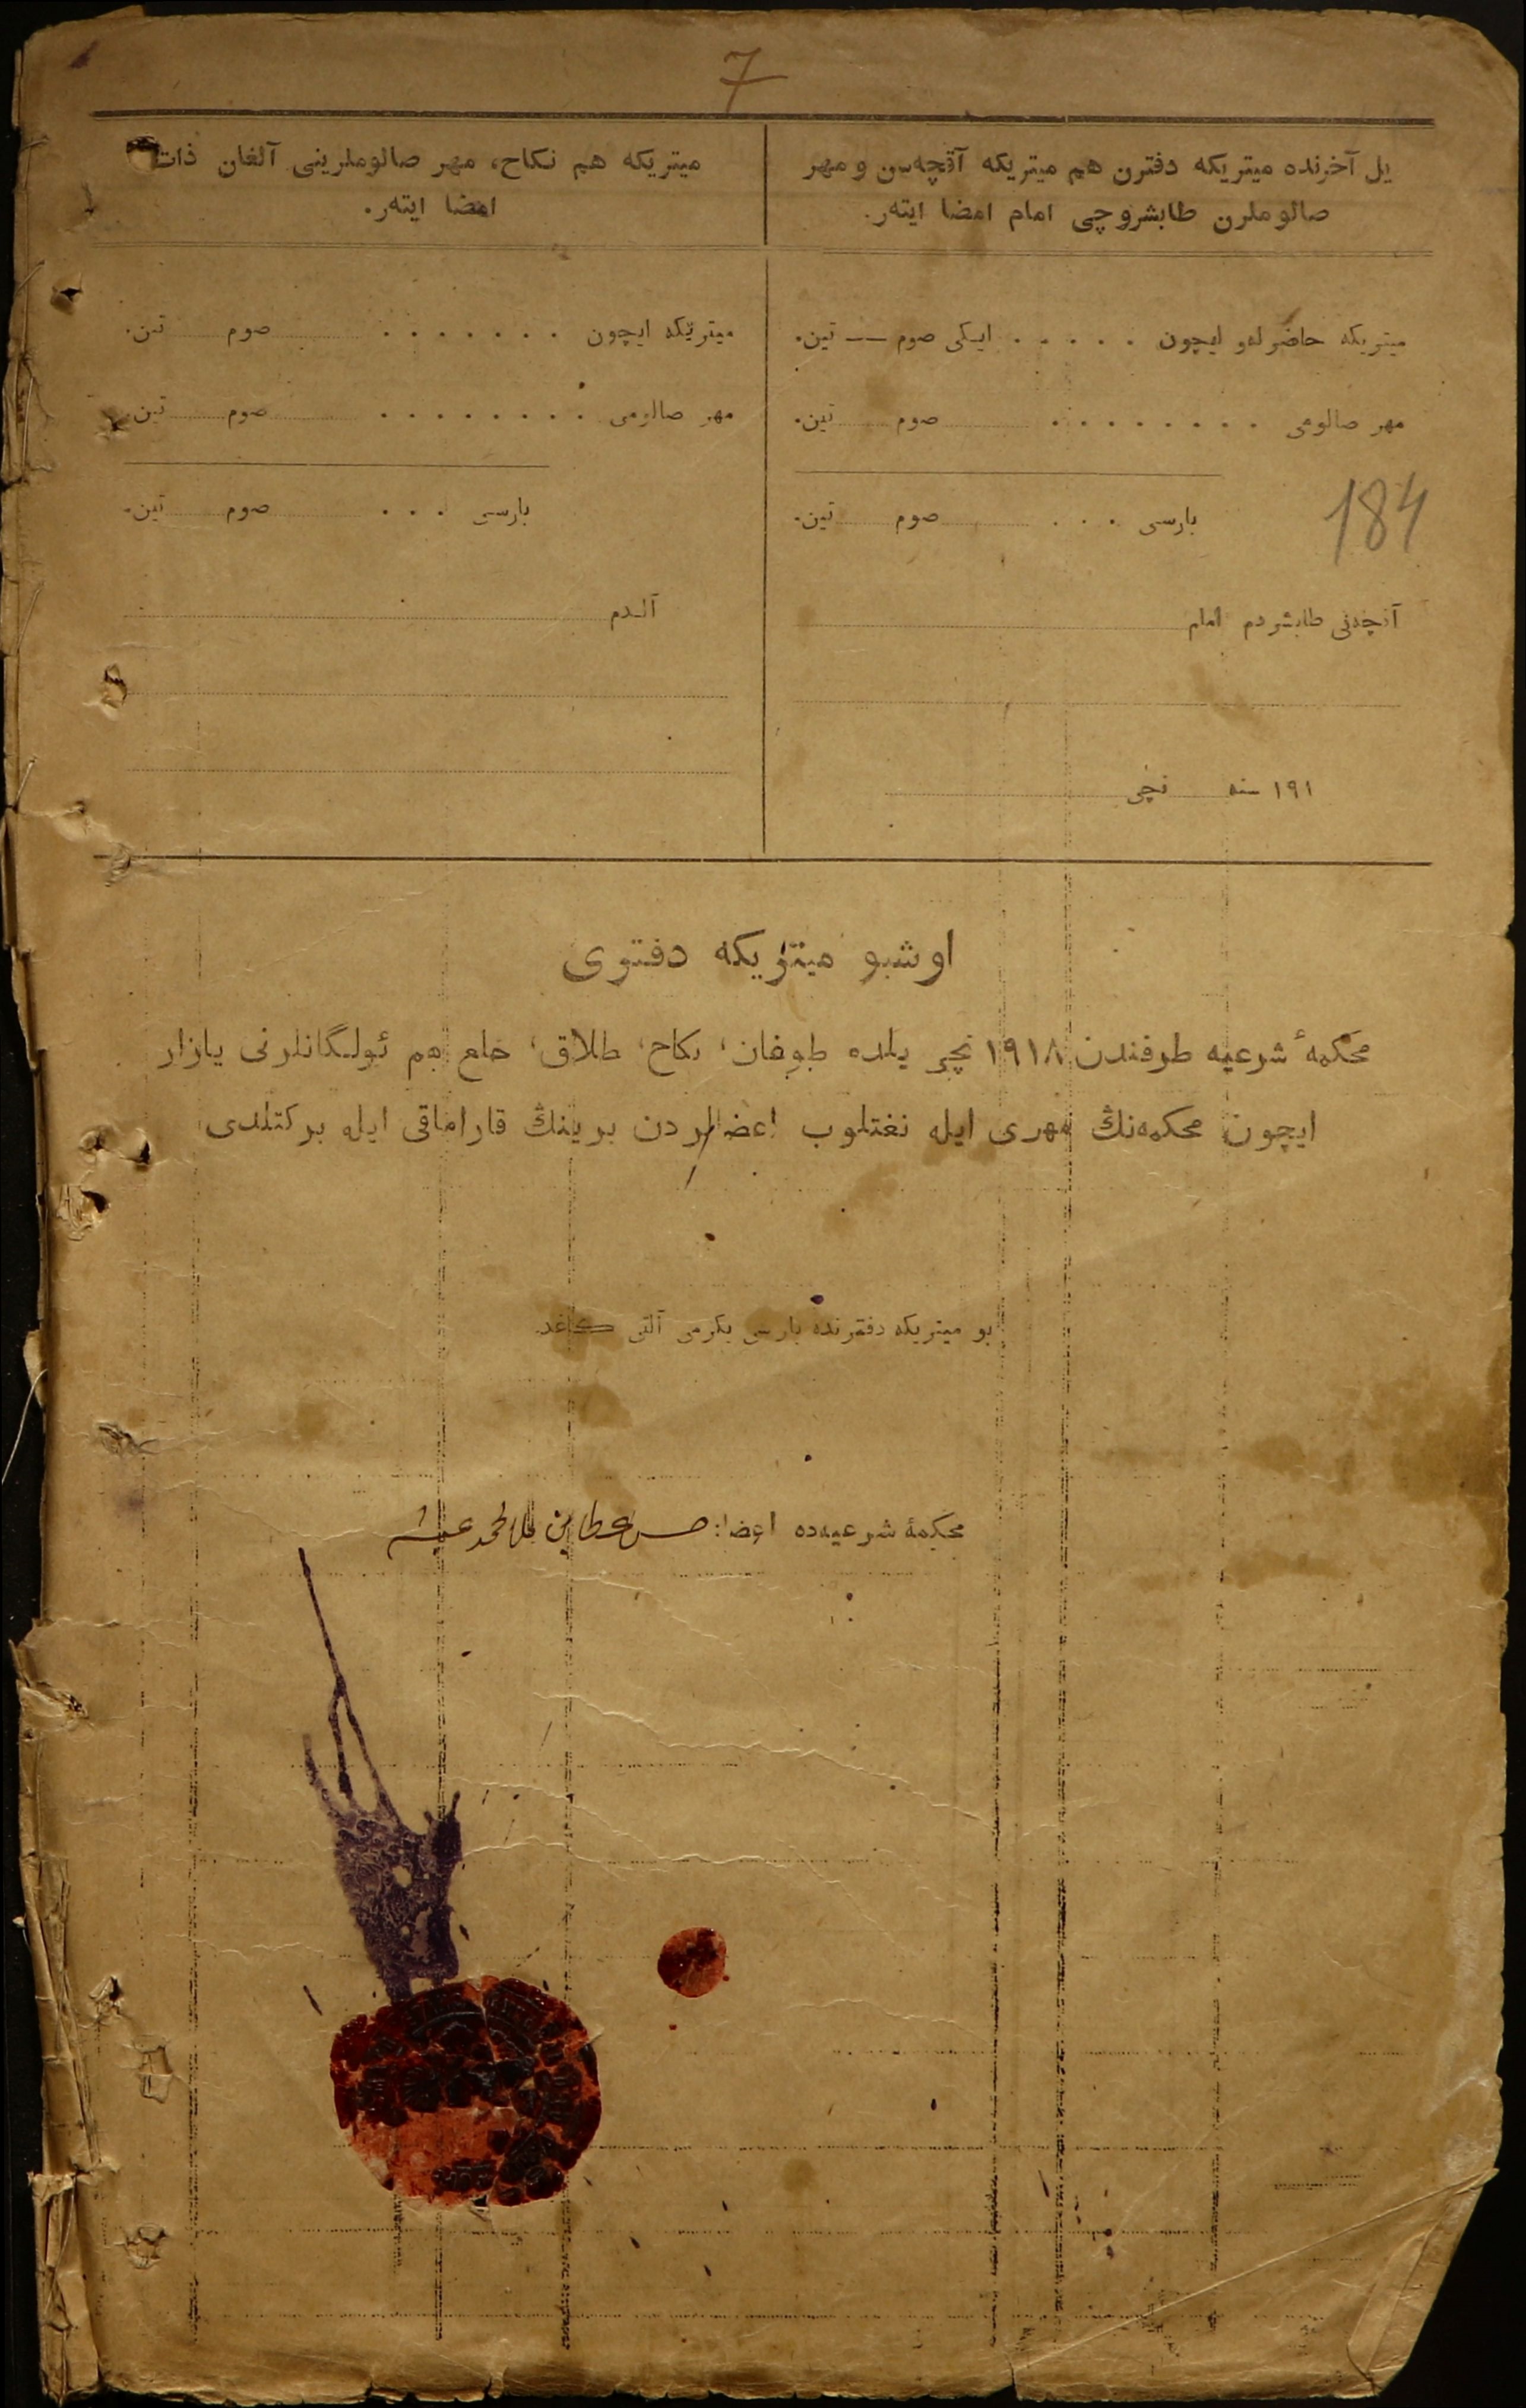 7
یل آخرنده میتریکه دفترن هم میتریکه آقچه‌سن و مهر
صالوملرن طابشروچی امام امضا ایته‌ر.
میتریکه حاضرله‌و ایچون . . . . . ایکی صوم — تین.
مهر صالومی . . . . . . . . صوم تین.
بارسی . . . صوم تین.
184
آقچه‌نی طابشردم امام
۱۹۱ سنه نچی
میتریکه هم نکاح، مهر صالوملرینی آلغان ذات
امضا ایته‌ر.
میتریکه ایچون . . . . . . . صوم تین.
مهر صالومی . . . . . . . . صوم تین.
بارسی . . . صوم تین.
آلدم
اوشبو میتریکه دفتری
محکمهٔ شرعیه طرفندن ۱۹۱۸ نچی یلده طوغان، نکاح، طلاق، خلع هم ئولگانلرنی یازار
ایچون محکمه‌نڭ مهری ایله نغتلوب اعضالردن برینڭ قاراماقی ایله برکتلدی
بو میتریکه دفترنده بارسی یکرمی آلتی کاغد.
محکمهٔ شرعیه‌ده اعضا: حسن عطا بن